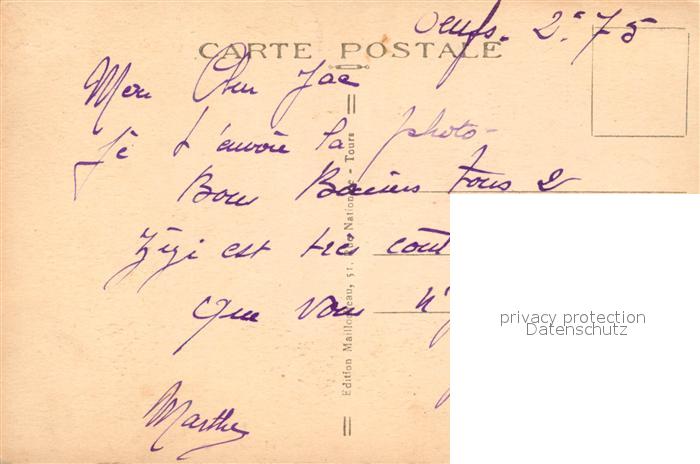 Oeufs. 2.75
CARTE POSTALE
Mon Cher Jac
Je t'envoie la photo-
Bons Baisers tous 2
Zizi est très cont
Que vous n'y
Marthe
Edition Maillo eau, 51, Rue Nationale - Tours
privacy protection
Datenschutz